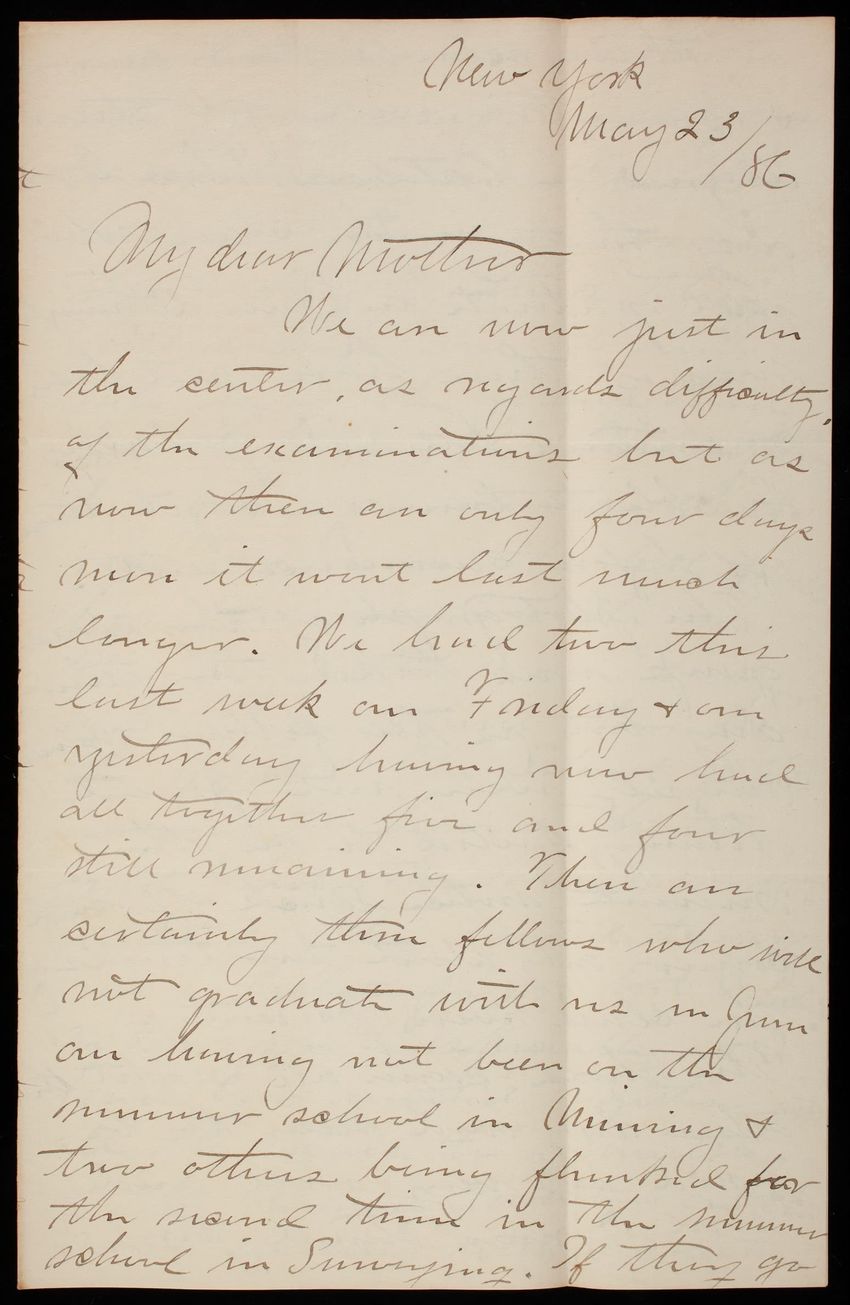 New York
May 23/86
My dear Mother
We are now just in
the center, as regards difficulty,
of the examinations but as
now there are only four days
more it wont last much
longer. We had two this
last week one Friday & one
yesterday having now had
all together five and four
still remaining. There are
certainly three fellows who will
not graduate with us in June
one having not been on the
summer school in Mining &
two others being flunked for
the second time in the summer
school in Surveying. If they go